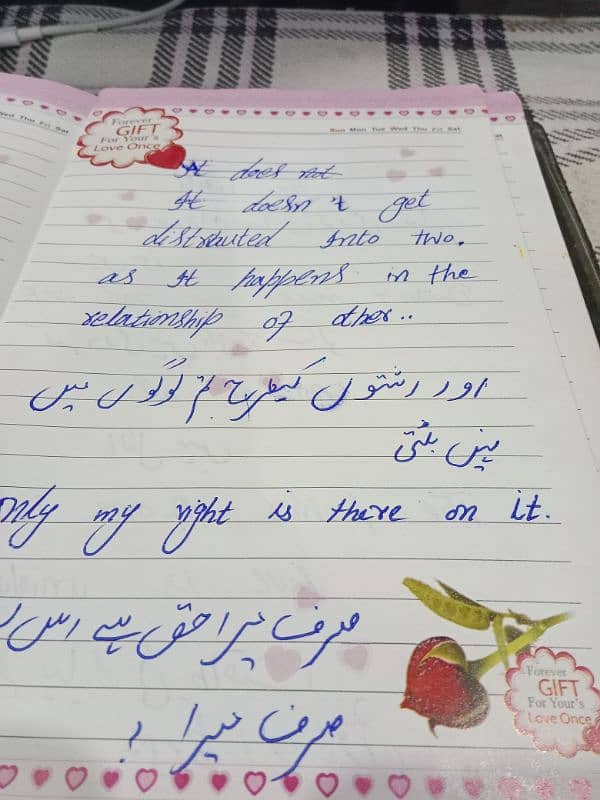 Wed Thu Fri Sat
Sun Mon Tue Wed Thu Fri Sat
Forever
GIFT
For Your's
Love Once
It does not
It doesn't get
distrbuted into two.
as it happens in the
relationship of other..
اور رشتوں کیطرح تم لوگوں میں
نہیں بٹتی
only my right is there on it.
صرف میرا حق ہے اس
صرف میرا !
Forever
GIFT
For Your's
Love Once